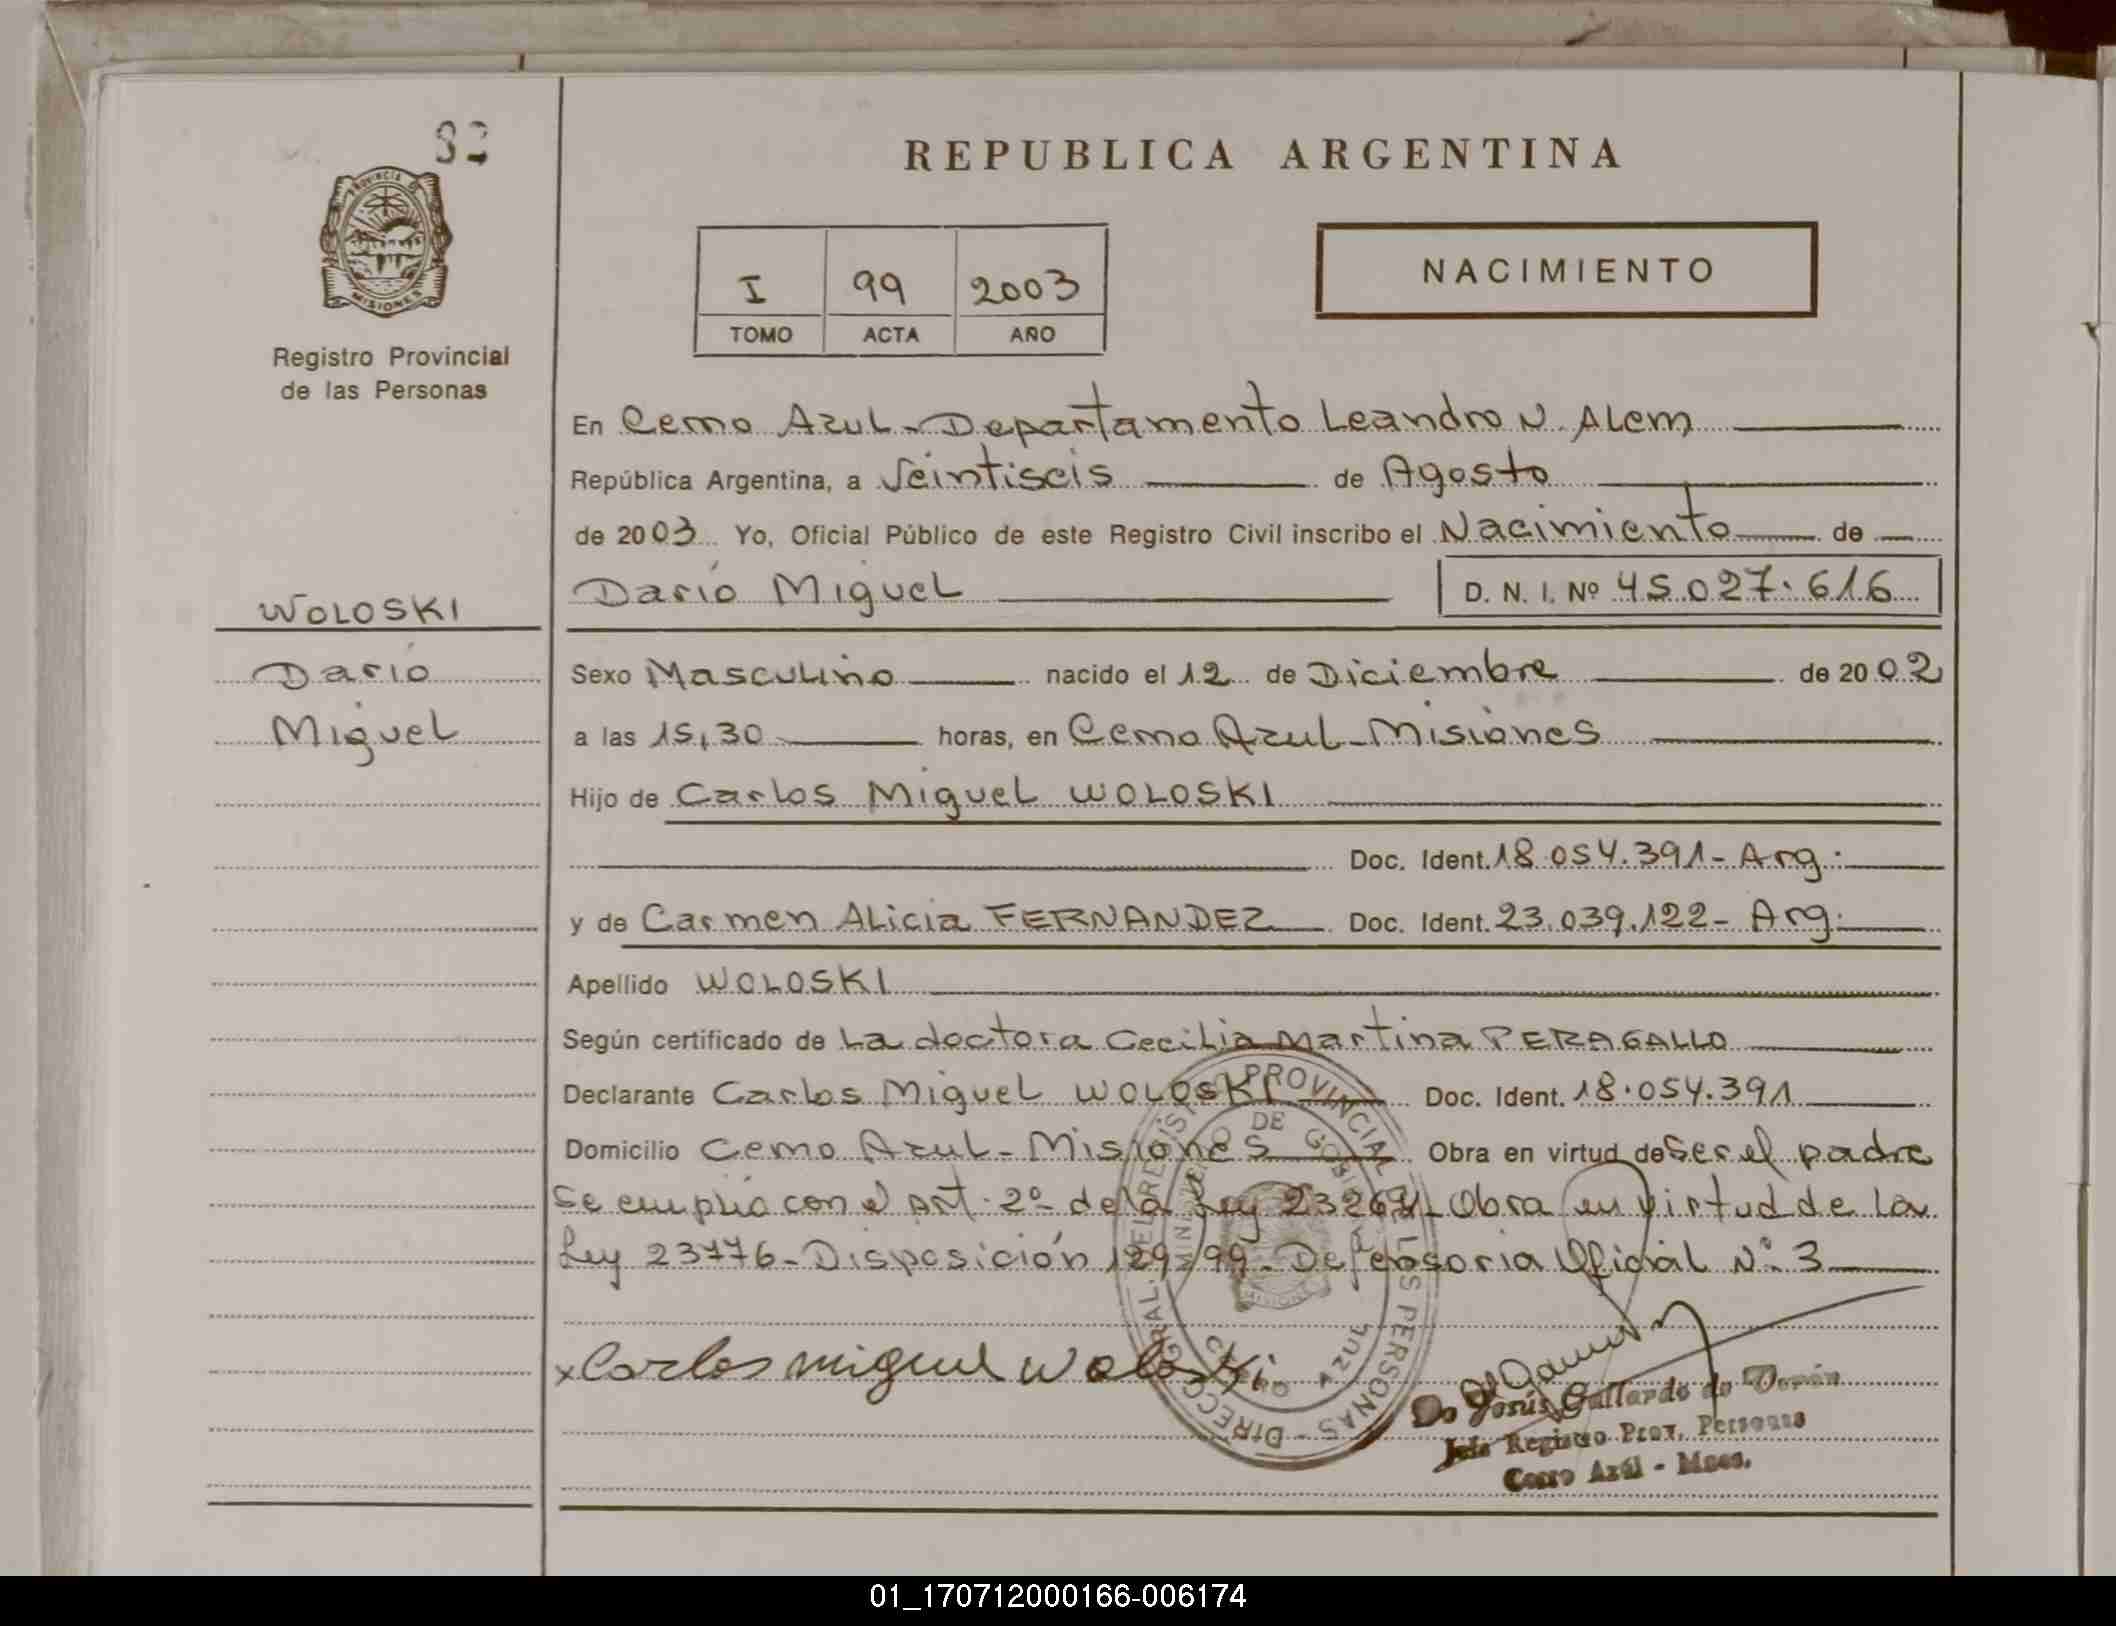 82
REPUBLICA ARGENTINA
PROVINCIA DE
MISIONES
Registro Provincial
de las Personas
I 99 2003
TOMO ACTA AÑO
NACIMIENTO
En Cerro Azul - Departamento Leandro N. Alem
República Argentina, a Veintiseis de Agosto
de 2003 Yo, Oficial Público de este Registro Civil inscribo el Nacimiento de
Dario Miguel D. N. I. Nº 45.027.616
WOLOSKI
Dario
Miguel
Sexo Masculino nacido el 12 de Diciembre de 2002
a las 15,30 horas, en Cerro Azul - Misiones
Hijo de Carlos Miguel WOLOSKI
Doc. Ident. 18.054.391 - Arg.
y de Carmen Alicia FERNANDEZ Doc. Ident. 23.039.122 - Arg.
Apellido WOLOSKI
Según certificado de La doctora Cecilia Martina PERAGALLO
Declarante Carlos Miguel WOLOSKI Doc. Ident. 18.054.391
Domicilio Cerro Azul - Misiones Obra en virtud de Ser el padre
Se cumplió con el Art. 2º de la Ley Obra en virtud de la
Ley 23776 - Disposición 129/99 - Defensoria Oficial Nº 3
x Carlos miguel woloski
Gallardo de
Jefe Registro Prov. Personas
Cerro Azúl - Mnes.
01_170712000166-006174